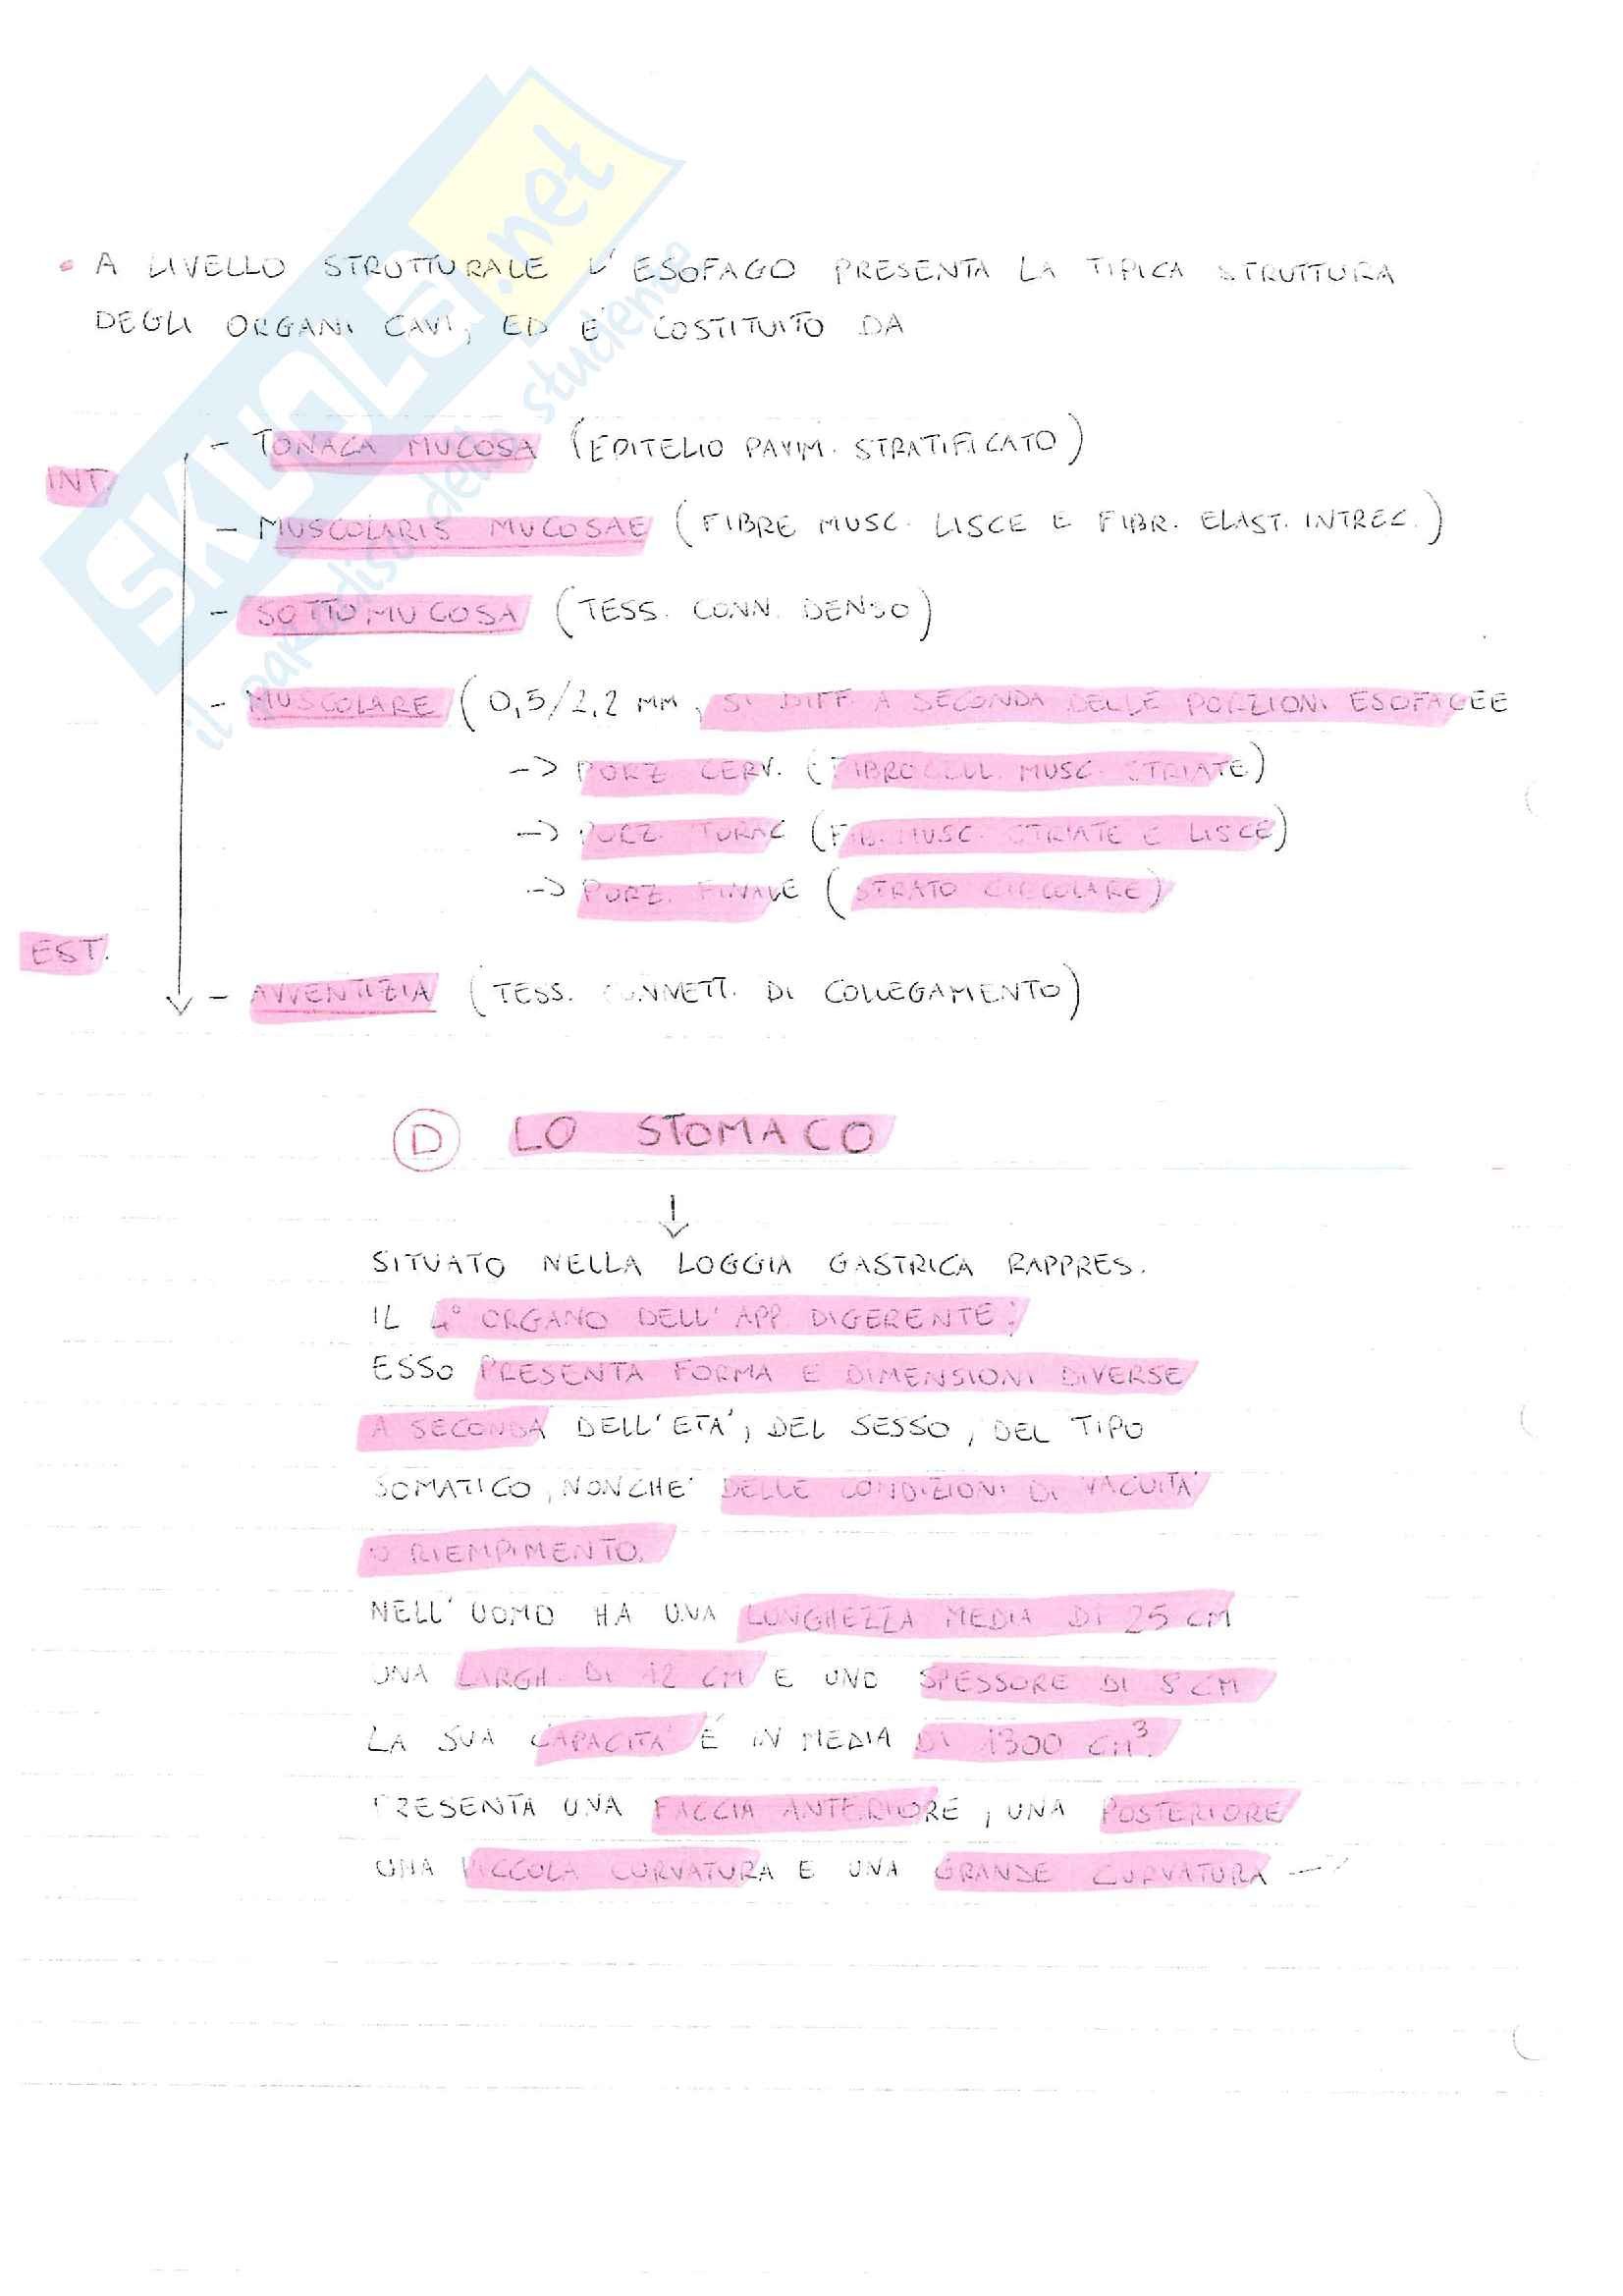 SKUOLA.net
il paradiso dello studente
• A LIVELLO STRUTTURALE L'ESOFAGO PRESENTA LA TIPICA STRUTTURA
DEGLI ORGANI CAVI, ED E' COSTITUITO DA
- TONACA MUCOSA (EPITELIO PAVIM. STRATIFICATO)
INT.
- MUSCOLARIS MUCOSAE (FIBRE MUSC. LISCE E FIBR. ELAST. INTREC.)
- SOTTOMUCOSA (TESS. CONN. DENSO)
- MUSCOLARE (0,5/2,2 MM, SI DIFF. A SECONDA DELLE PORZIONI ESOFAGEE
-> PORZ. CERV. (FIBROCELL. MUSC. STRIATE)
-> PORZ. TORAC (FIB. MUSC. STRIATE E LISCE)
-> PORZ. FINALE (STRATO CIRCOLARE)
EST.
- AVVENTIZIA (TESS. CONNETT. DI COLLEGAMENTO)
D LO STOMACO
↓
SITUATO NELLA LOGGIA GASTRICA RAPPRES.
IL 4° ORGANO DELL'APP. DIGERENTE;
ESSO PRESENTA FORMA E DIMENSIONI DIVERSE
A SECONDA DELL'ETA', DEL SESSO, DEL TIPO
SOMATICO, NONCHE' DELLE CONDIZIONI DI VACUITA'
O RIEMPIMENTO.
NELL'UOMO HA UNA LUNGHEZZA MEDIA DI 25 CM
UNA LARGH. DI 12 CM E UNO SPESSORE DI 8 CM
LA SUA CAPACITA' E' IN MEDIA DI 1300 CM³.
PRESENTA UNA FACCIA ANTERIORE, UNA POSTERIORE
UNA PICCOLA CURVATURA E UNA GRANDE CURVATURA ->